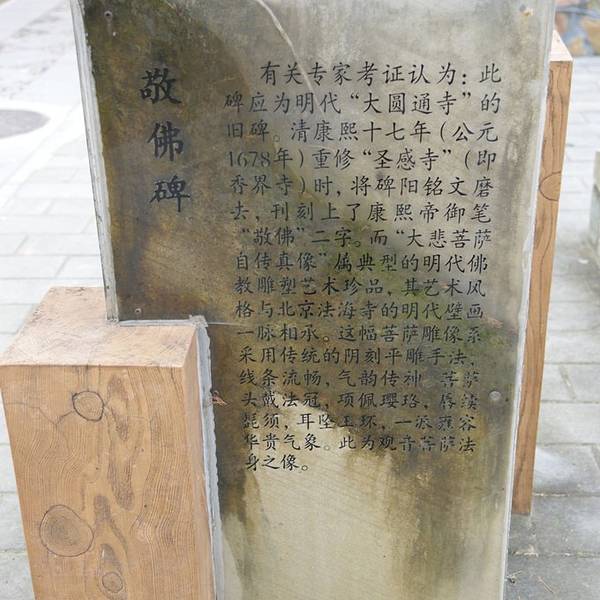 敬佛碑
有关专家考证认为：此
碑应为明代“大圆通寺”的
旧碑。清康熙十七年（公元
1678年）重修“圣感寺”（即
香界寺）时，将碑阳铭文磨
去，刊刻上了康熙帝御笔
“敬佛”二字。而“大悲菩萨
自传真像”属典型的明代佛
教雕塑艺术珍品，其艺术风
格与北京法海寺的明代壁画
一脉相承。这幅菩萨雕像系
采用传统的阴刻平雕手法，
线条流畅，气韵传神。菩萨
头戴法冠，项佩璎珞，唇
髭须，耳坠玉环，一派雍容
华贵气象。此为观音菩萨法
身之像。